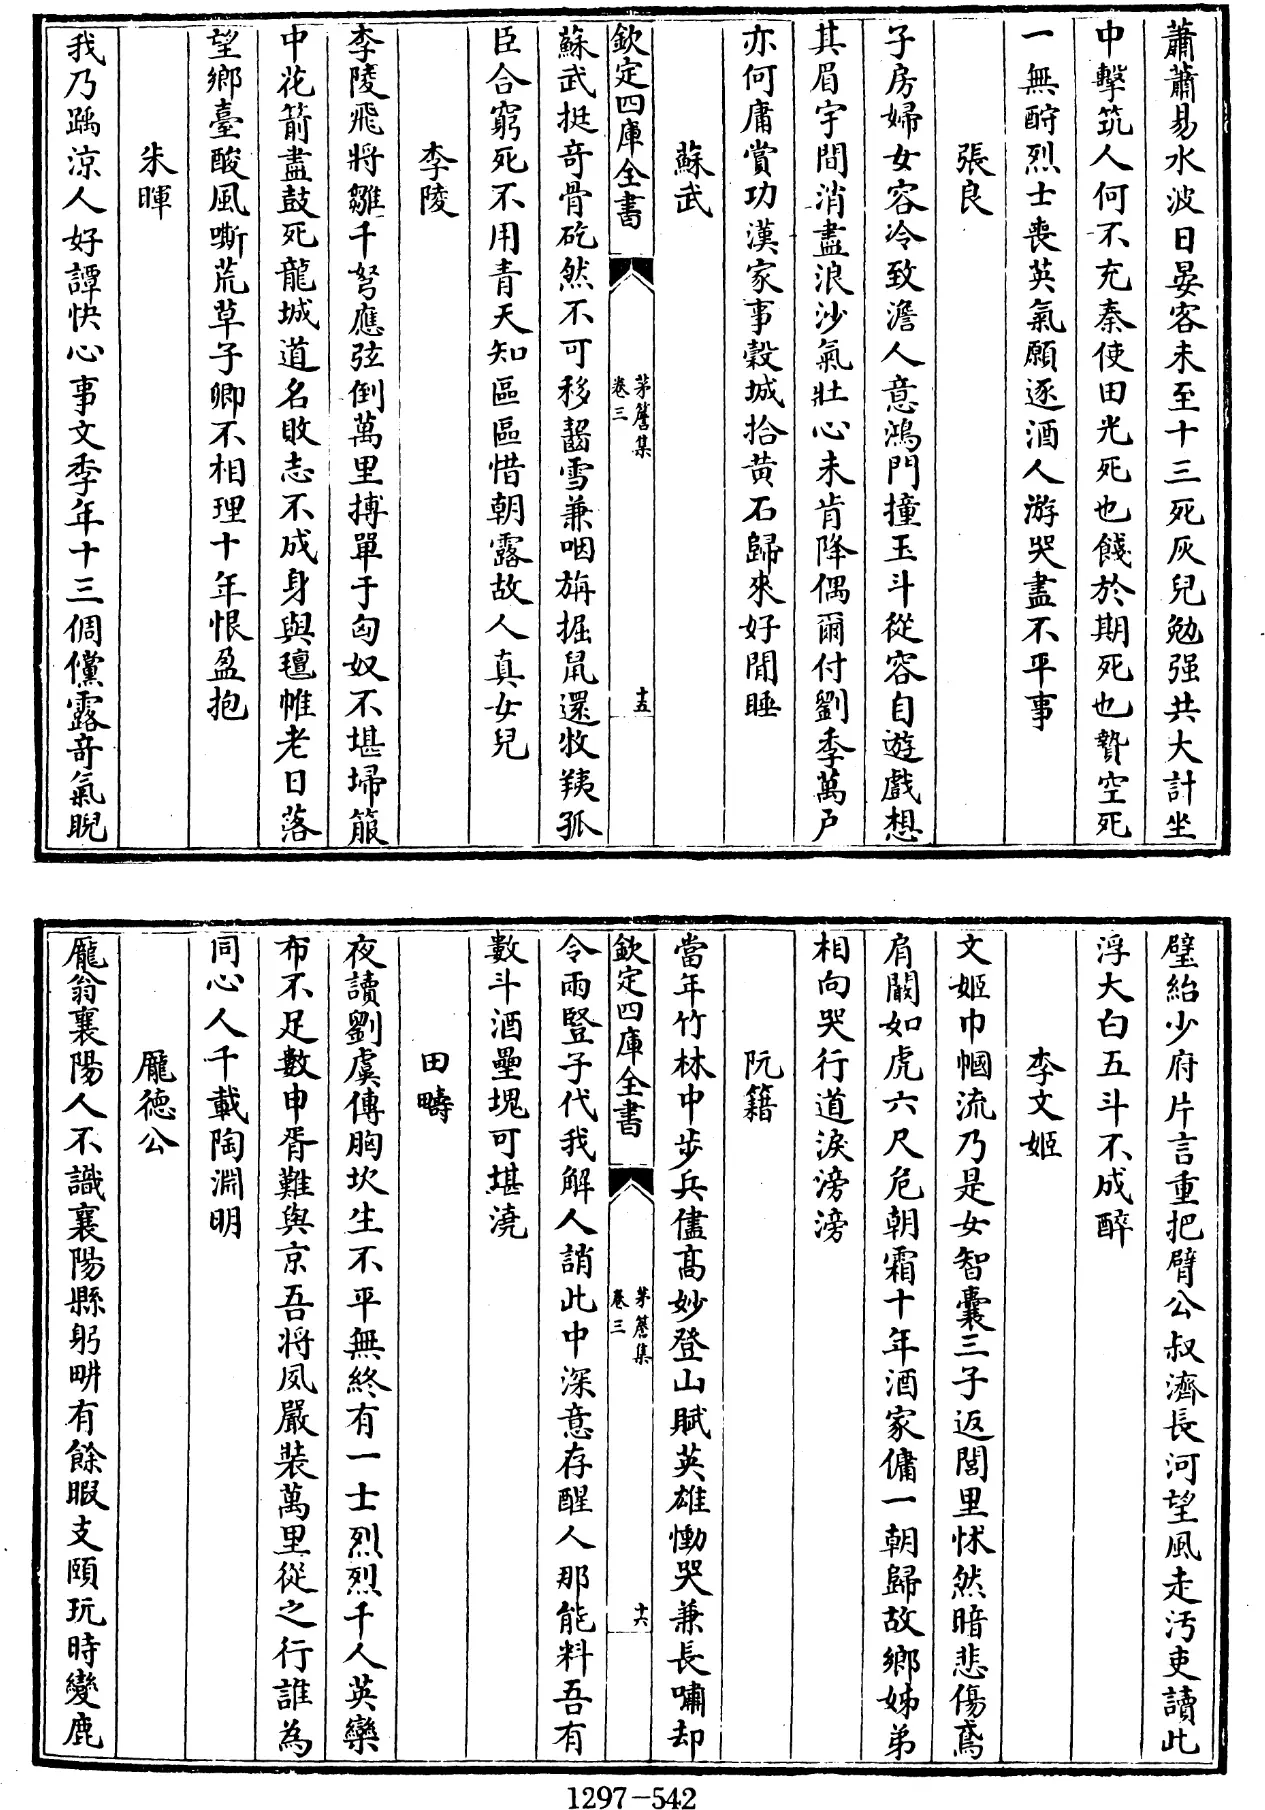 蕭蕭易水波日晏客未至十三死灰兒勉强共大計坐
中擊筑人何不充秦使田光死也餞於期死也贄空死
一無酧烈士喪英氣願逐酒人游哭盡不平事
張良
子房婦女容冷致澹人意鴻門撞玉斗從容自遊戲想
其眉宇間消盡浪沙氣壯心未肯降偶爾付劉季萬戸
亦何庸賞功漢家事穀城拾黄石歸來好閒睡
蘇武
欽定四庫全書
茅簷集
卷三
十五
蘇武挺奇骨矻然不可移齧雪兼咽旃掘鼠還牧羠孤
臣合窮死不用青天知區區惜朝露故人真女兒
李陵
李陵飛將雛千弩應弦倒萬里搏單于匈奴不堪埽箙
中花箭盡鼓死龍城道名敗志不成身與氊帷老日落
望鄉臺酸風嘶荒草子卿不相理十年恨盈抱
朱暉
我乃踽涼人好譚快心事文季年十三倜儻露奇氣睨
璧紿少府片言重把臂公叔濟長河望風走汚吏讀此
浮大白五斗不成醉
李文姬
文姬巾幗流乃是女智囊三子返閭里怵然暗悲傷鳶
肩闞如虎六尺危朝霜十年酒家傭一朝歸故鄉姊弟
相向哭行道淚滂滂
阮籍
當年竹林中步兵儘高妙登山賦英雄慟哭兼長嘯却
欽定四庫全書
茅簷集
卷三
十六
令雨豎子代我解人誚此中深意存醒人那能料吾有
數斗酒壘塊可堪澆
田疇
夜讀劉虞傳胸坎生不平無終有一士烈烈千人英欒
布不足數申胥難與京吾將夙嚴裝萬里從之行誰為
同心人千載陶淵明
龎德公
龎翁襄陽人不識襄陽縣躬畊有餘暇支頤玩時變鹿
1297-542